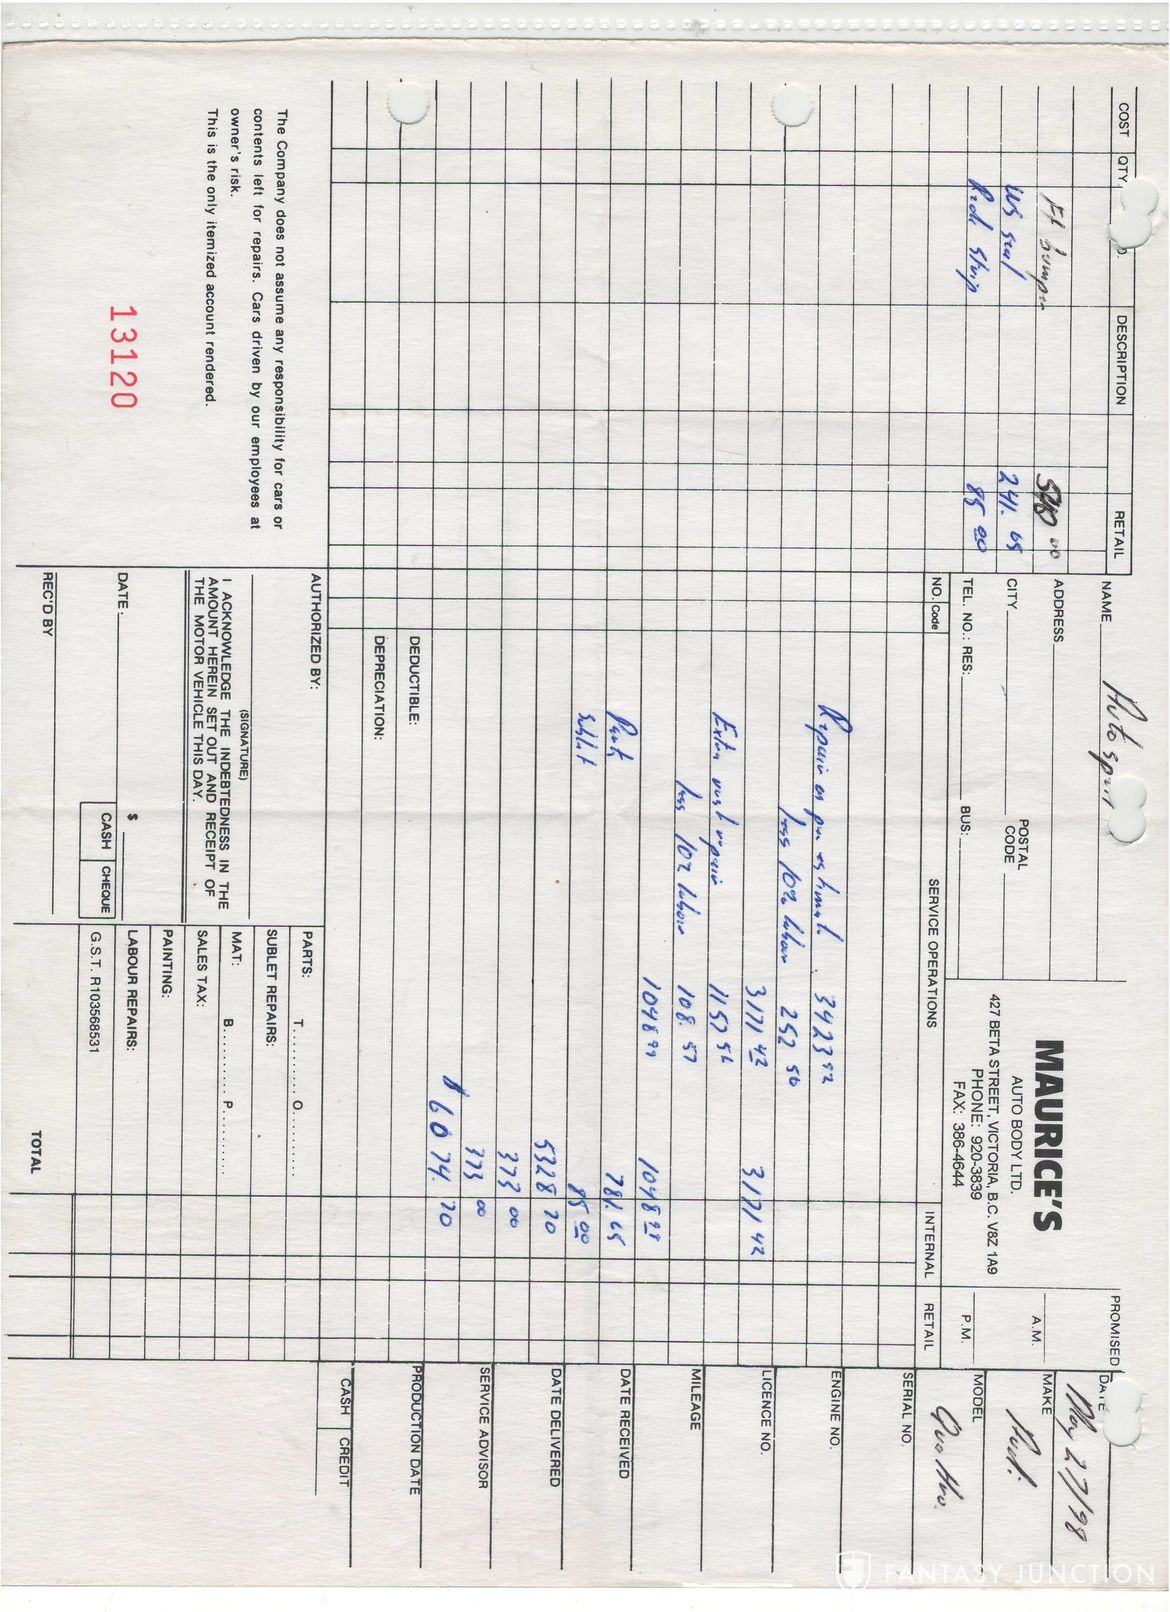 MAURICE'S
AUTO BODY LTD.
427 BETA STREET, VICTORIA, B.C. V8Z 1A9
PHONE: 920-3839
FAX: 386-4644
NAME Autosport
ADDRESS
CITY
POSTAL CODE
TEL. NO.: RES: BUS:
PROMISED
A.M.
P.M.
DATE May 27/98
MAKE Audi
MODEL Quattro
SERIAL NO.
ENGINE NO.
LICENCE NO.
MILEAGE
DATE RECEIVED
DATE DELIVERED
SERVICE ADVISOR
PRODUCTION DATE
CASH CREDIT
COST QTY. DESCRIPTION RETAIL
Ft bumper 00
WS seal 241.65
Rock strip 85 00
NO. Code SERVICE OPERATIONS INTERNAL RETAIL
Repair as per estimate 3423 92
less 10% labour 252 50
3171 42 3171 42
Extra rust repair 1157 56
less 10% labour 108.57
1048 99 1048 99
Parts 781.65
Sublet 85 00
5328 70
373 00
373 00
$ 6074.70
DEDUCTIBLE:
DEPRECIATION:
AUTHORIZED BY:
(SIGNATURE)
I ACKNOWLEDGE THE INDEBTEDNESS IN THE
AMOUNT HEREIN SET OUT AND RECEIPT OF
THE MOTOR VEHICLE THIS DAY.
DATE. $
CASH CHEQUE
REC'D BY
PARTS: T.......... O..........
SUBLET REPAIRS:
MAT: B.......... P..........
SALES TAX:
PAINTING:
LABOUR REPAIRS:
G.S.T. R103568531
TOTAL
The Company does not assume any responsibility for cars or
contents left for repairs. Cars driven by our employees at
owner's risk.
This is the only itemized account rendered.
13120
FANTASY JUNCTION